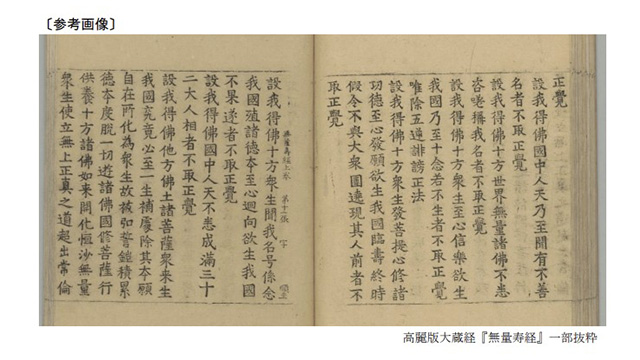 〔参考画像〕
正覺
設我得佛國中人天乃至聞有不善
名者不取正覺
設我得佛十方世界無量諸佛不悉
咨嗟稱我名者不取正覺
設我得佛十方衆生至心信樂欲生
我國乃至十念若不生者不取正覺
唯除五逆誹謗正法
設我得佛十方衆生發菩提心修諸
功德至心發願欲生我國臨壽終時
假令不與大衆圍遶現其人前者不
取正覺
設我得佛十方衆生聞我名号係念
無量壽經上卷
我國殖諸德本至心迴向欲生我國
不果遂者不取正覺
設我得佛國中人天不悉成滿三十
二大人相者不取正覺
設我得佛他方佛土諸菩薩衆來生
我國究竟必至一生補處除其本願
自在所化爲衆生故被弘誓鎧積累
德本度脫一切遊諸佛國修菩薩行
供養十方諸佛如來開化恒沙無量
衆生使立無上正真之道超出常倫
高麗版大蔵経『無量寿経』一部抜粋